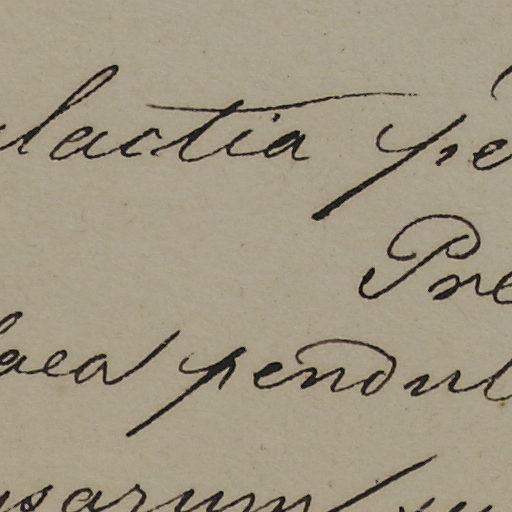 lactia pe
Pre
laea pendul
sarum